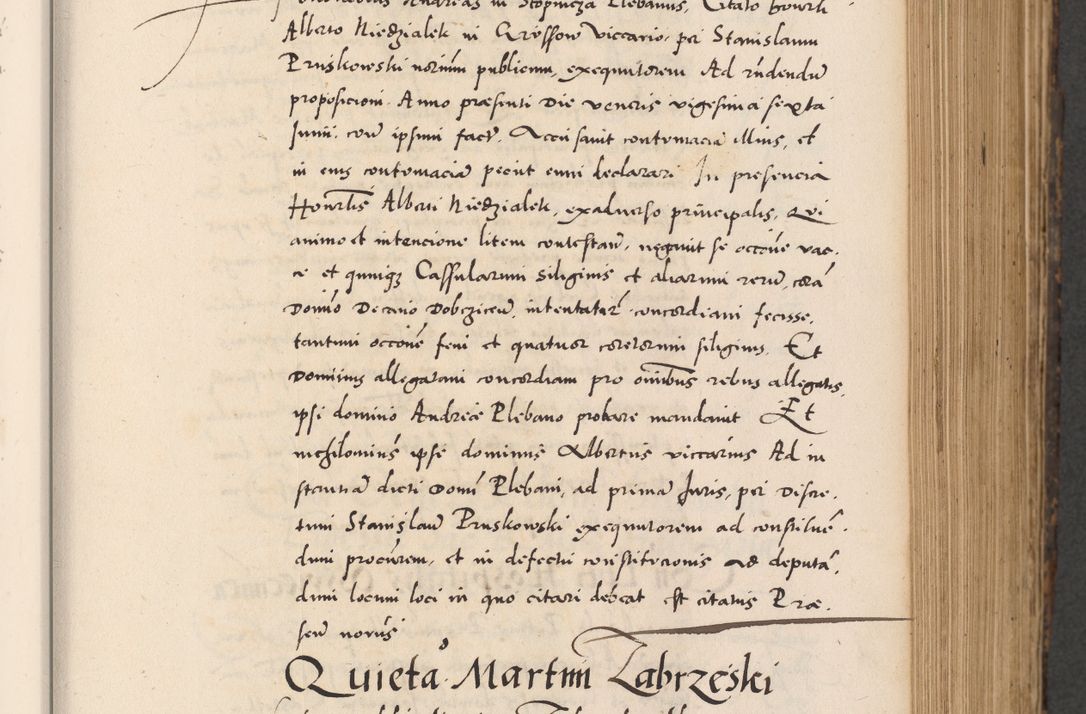 Andreas in Stopnicza Plebanus, Citato honrli
Alberto Niedzialek in Grossow viccario, per Stanislaum
Pruskowski norium publicum, exequutorem Ad rndendū
proposicioni. Anno præsenti Die veneris vigesima sexta
Junii, corā ipsum factū. Accusauit contumaciā illius, et
in eius contumaciā peciit eum declarari In presencia
Honrlis Alberti Niedzialek, ex aduerso principalis, Qui
animo et intencione litem contestandi, negauit se occōne vac-
ce et quinqz Cassularum siliginis et aliarum rerū, corā
Domīo Decano Dobcziceñ. intentatar concordiam fecisse,
tantum occōne feni et quatuor coretorum siliginis. Et
Dominus allegatam concordiam pro omībus rebus allegatis,
ipsi domino Andreæ Plebano probare mandauit Et
nichilominus ipse dominus Albertus viccarius Ad in
stantiā dicti Domī Plebani, ad primā Juris, per Discre-
tum Stanislaū Pruskowski exequutorem ad constituē-
dum procurem, et in defectu constitucionis ad deputā-
dum locum loci in quo citari debeat est citatus Præ-
sen norius
Quieta Martini Zabrzeski